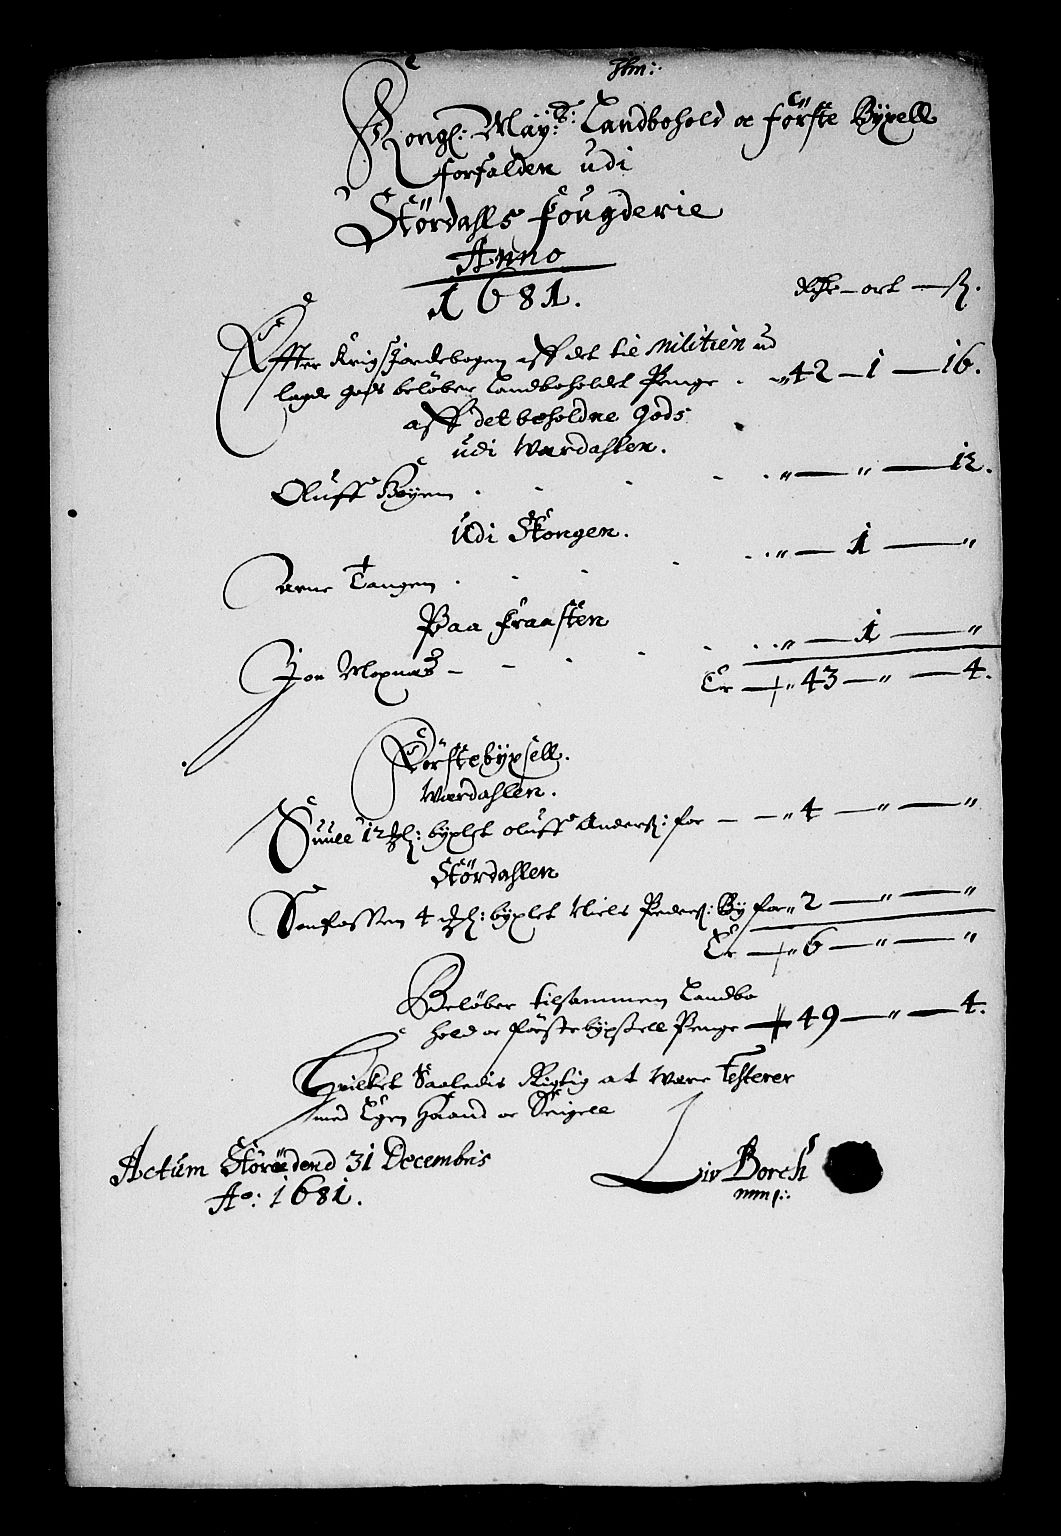 Kongl: May:ts: Landbohold oc förste Byxell
forfalden udi
Stördahls fougderie
Anno
1681.
Rdr – ort – ß.
Effter Krigs Jordebogen aff det til Militien ud
lagde gods beløber Landboholdet Penge . „ 42 – 1 – 16.
aff det beholdne gods
udi Wærdahlen.
Oluff Bøyem . . . „ – „ – 12.
Udi Skongen.
Arne Tangen . . . „ – 1 – „
Paa Fraasten
Jon Mopnæs – – . . „ – 1 – „
Er – „ 43 – „ – 4.
Förstebÿxsell.
Wærdahlen.
Suule 12 bÿxlet oluff Anderß: for – – „ 4 – „ – „
Stördahlen
4 bÿxlet Niels Pederß: By for „ 2 – „ – „
Er – „ 6 – „ – „
Beløber tilsammen Landbo
hold oc förstebÿxsell Penge – 49 – „ – 4.
Hvilket Saaledis Rigtig at Være Testerer
med Egen Haand oc Seigell
Actum Stördend 31 Decembris
Ao: 1681.
Liv Borch
mmp: